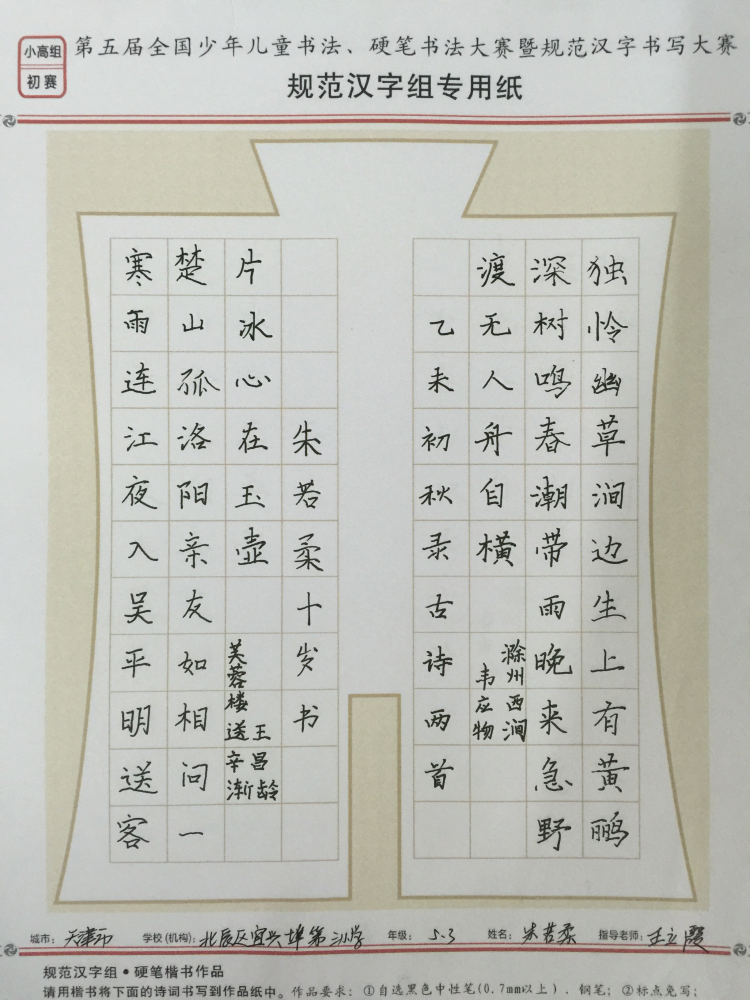 小高组
初赛
第五届全国少年儿童书法、硬笔书法大赛暨规范汉字书写大赛
规范汉字组专用纸
独怜幽草涧边生上有黄鹂
深树鸣春潮带雨晚来急野
渡无人舟自横
滁州西涧
韦应物
乙未初秋录古诗两首
寒雨连江夜入吴平明送客
楚山孤洛阳亲友如相问一
片冰心在玉壶
芙蓉楼送辛渐
王昌龄
朱若柔十岁书
城市：天津市 学校(机构)：北辰区宜兴埠第三小学 年级：5.3 姓名：朱若柔 指导老师：王立霞
规范汉字组•硬笔楷书作品
请用楷书将下面的诗词书写到作品纸中。作品要求：①自选黑色中性笔(0.7mm以上)、钢笔；②标点免写；